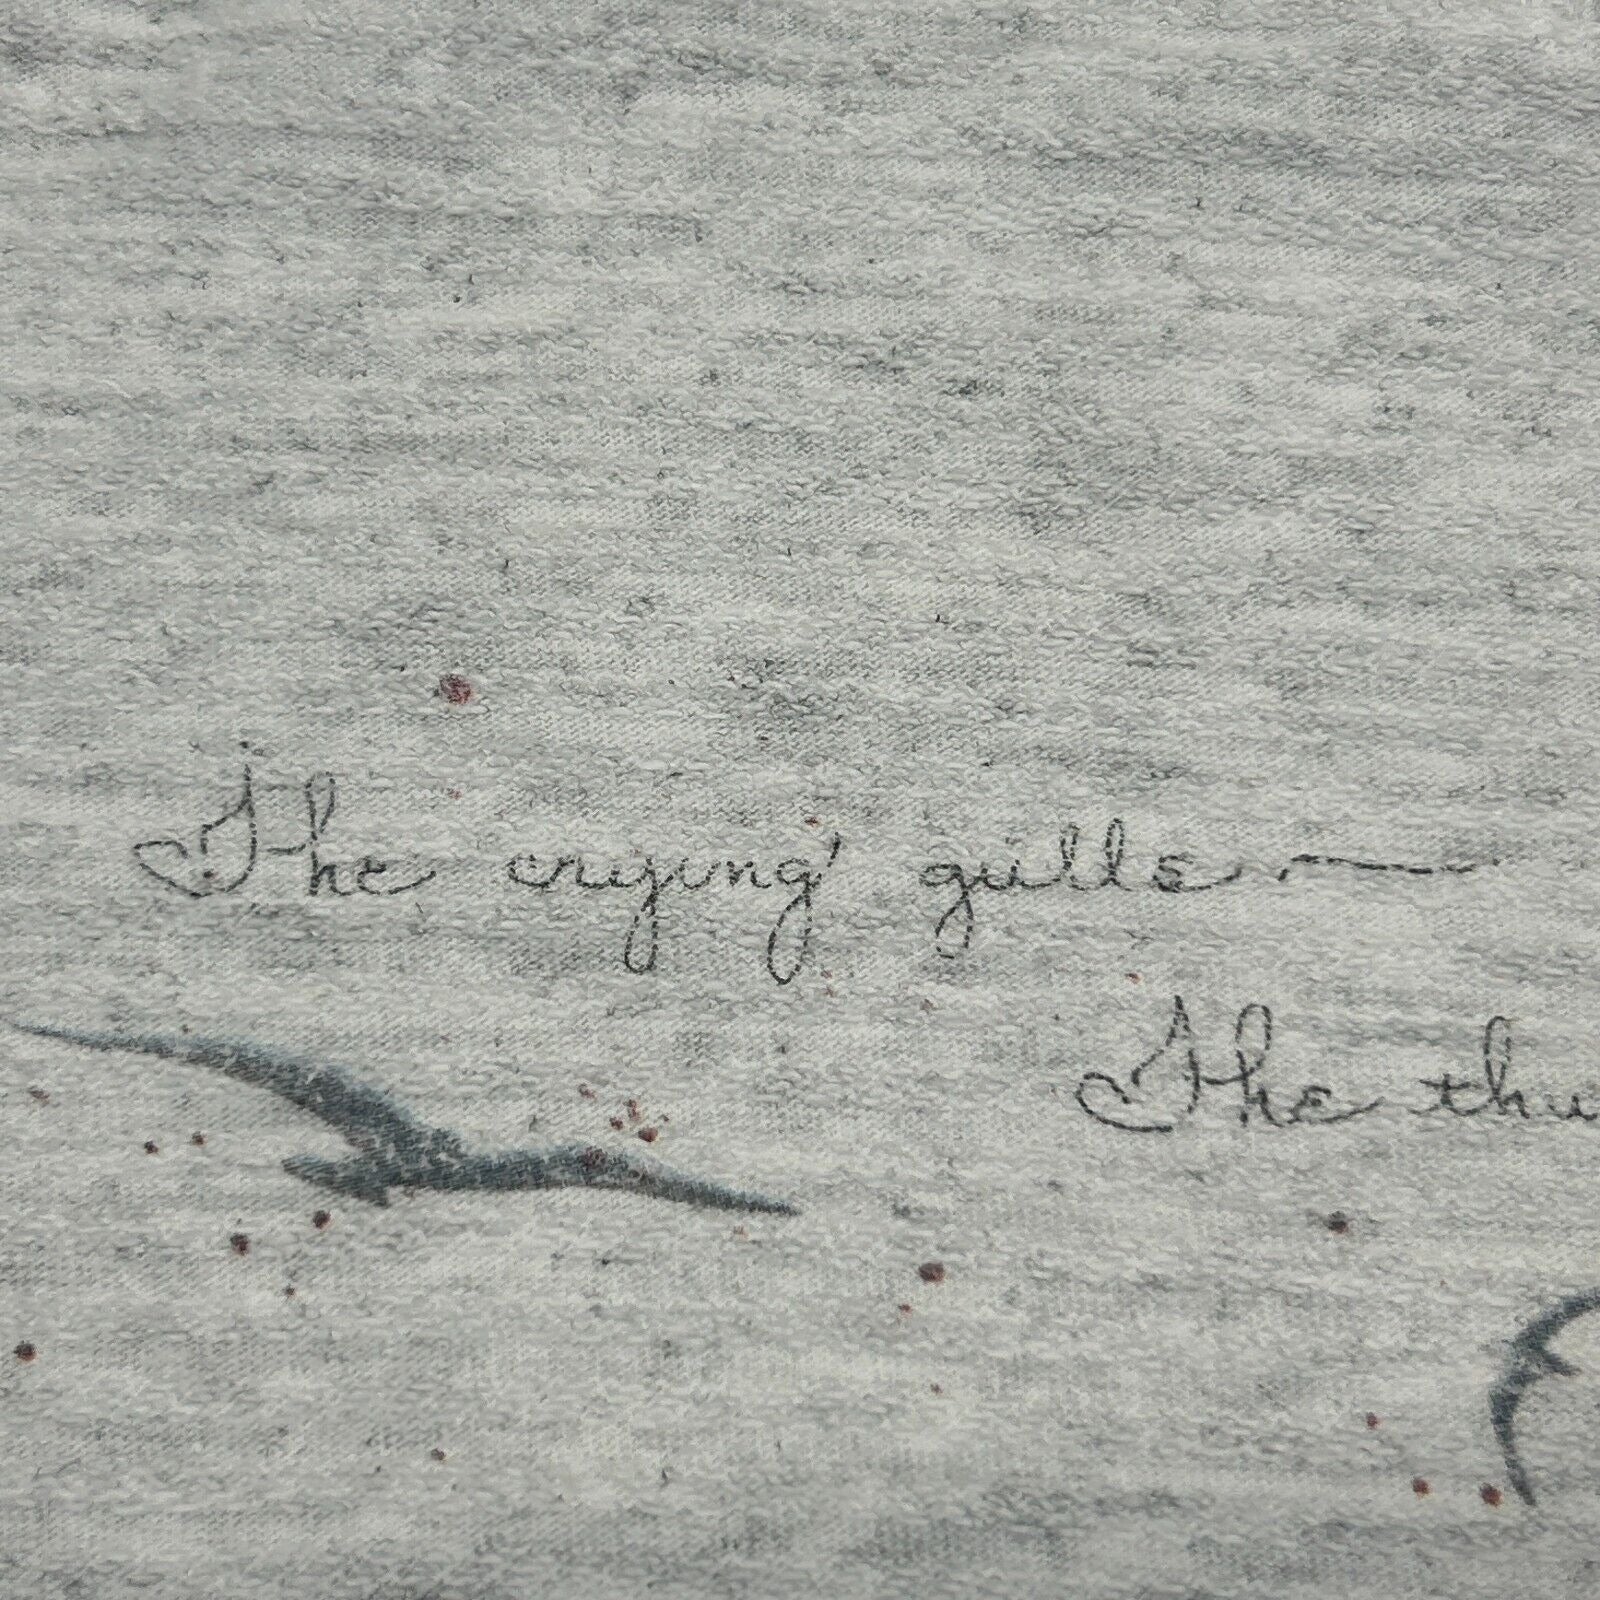 The crying gulls
The thu